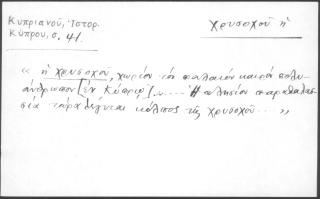 Κυπριανοῦ, Ἱστορ.
Κύπρου, σ. 41.
Χρυσοχοῦ ἡ
« ἡ Χρυσοχοῦ, χωρίον τὸν παλαιὸν καιρὸν πολυ-
άνθρωπον [ἐν Κύπρῳ] ...... Ἡ πλησίον παραθαλασ-
σία τώρα λέγεται κόλπος τῆς Χρυσοχοῦ ... »